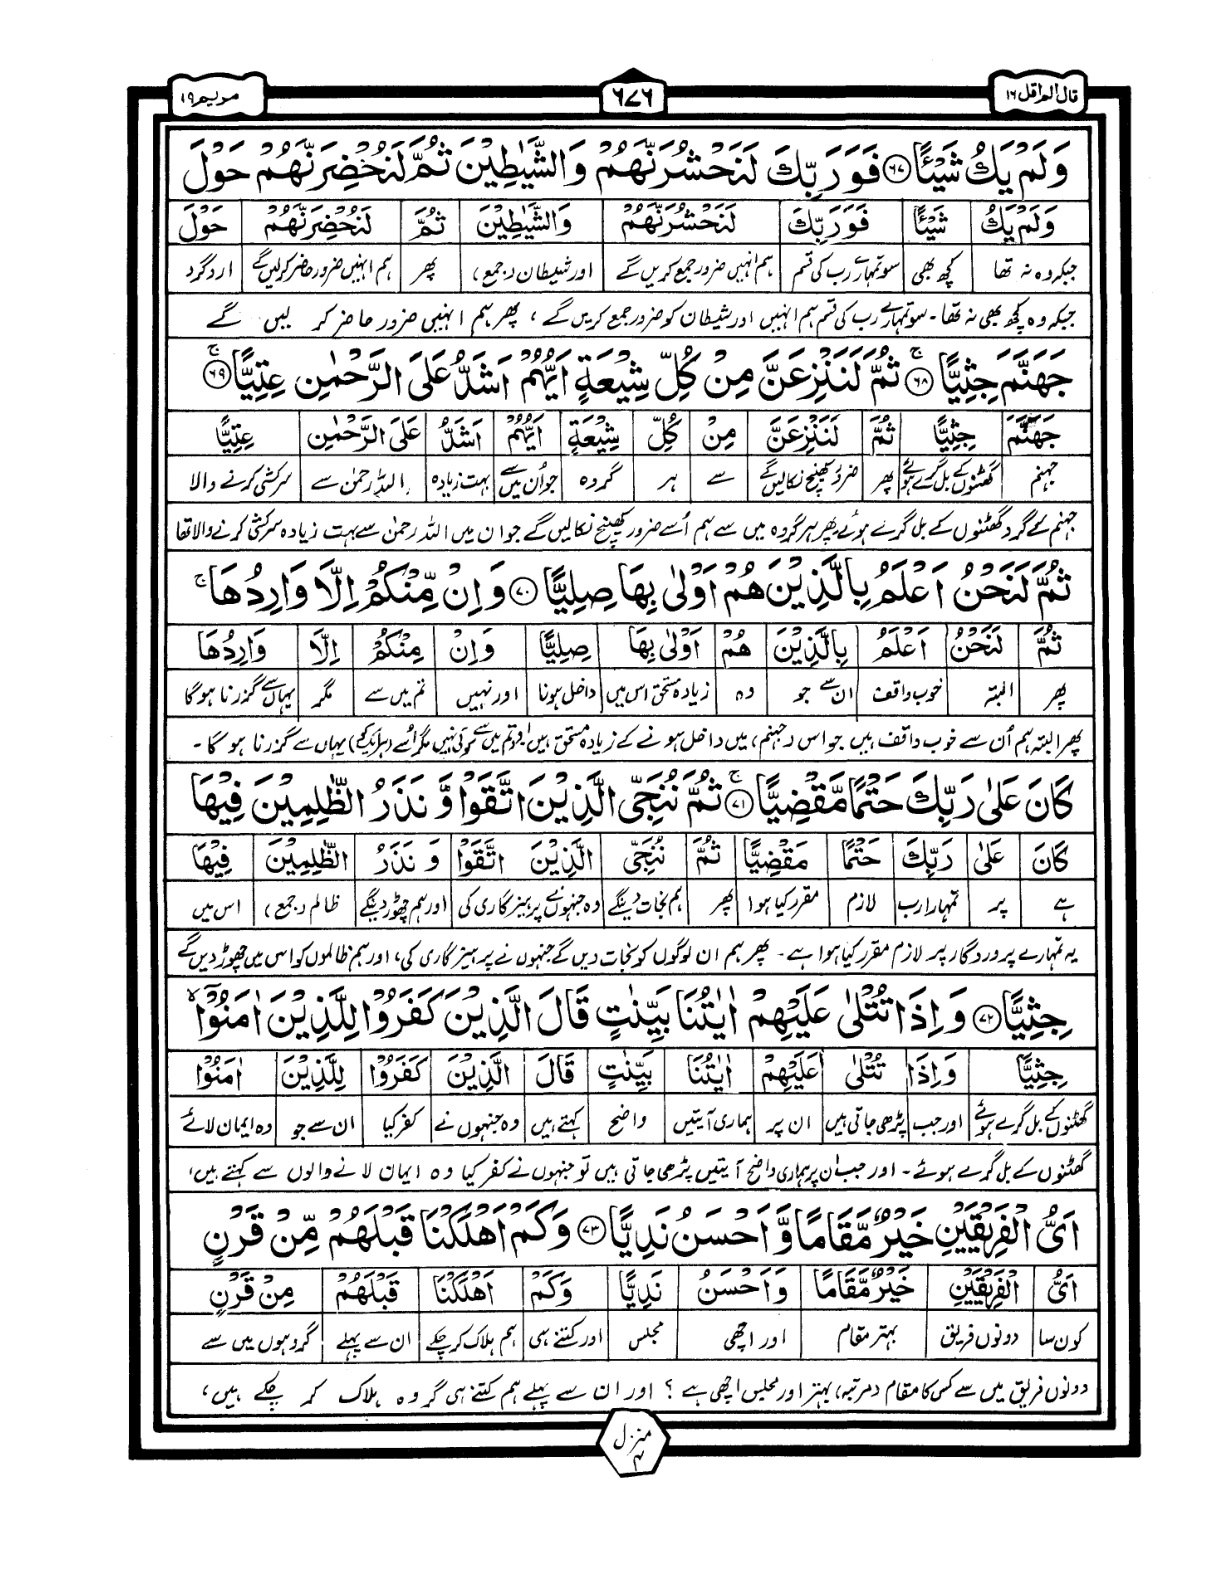 قال الم اقل ١٦
٦٧٦
مریم ١٩
وَلَمْ يَكُ شَيْـًٔا ﴿٦٧﴾ فَوَرَبِّكَ لَنَحْشُرَنَّهُمْ وَالشَّيٰطِيْنَ ثُمَّ لَنُحْضِرَنَّهُمْ حَوْلَ
وَلَمْ يَكُ شَيْـًٔا فَوَرَبِّكَ لَنَحْشُرَنَّهُمْ وَالشَّيٰطِيْنَ ثُمَّ لَنُحْضِرَنَّهُمْ حَوْلَ
جبکہ وہ نہ تھا کچھ بھی سو تمہارے رب کی قسم ہم انہیں ضرور جمع کریں گے اور شیطان (جمع) پھر ہم انہیں ضرور حاضر کرلیں گے ارد گرد
جبکہ وہ کچھ بھی نہ تھا۔ سو تمہارے رب کی قسم ہم انہیں اور شیطان کو ضرور جمع کریں گے، پھر ہم انہیں ضرور حاضر کر لیں گے
جَهَنَّمَ جِثِيًّا ﴿٦٨﴾ ج ثُمَّ لَنَنْزِعَنَّ مِنْ كُلِّ شِيْعَةٍ اَيُّهُمْ اَشَدُّ عَلَى الرَّحْمٰنِ عِتِيًّا ﴿٦٩﴾ ج
جَهَنَّمَ جِثِيًّا ثُمَّ لَنَنْزِعَنَّ مِنْ كُلِّ شِيْعَةٍ اَيُّهُمْ اَشَدُّ عَلَى الرَّحْمٰنِ عِتِيًّا
جہنم گھٹنوں کے بل گرے ہوئے پھر ضرور کھینچ نکالیں گے سے ہر گروہ جو اُن میں سے بہت زیادہ اللہ رحمن سے سرکشی کرنے والا
جہنم کے گرد گھٹنوں کے بل گرے ہوئے پھر ہر گروہ میں سے ہم اُسے ضرور کھینچ نکالیں گے جو ان میں اللہ رحمن سے بہت زیادہ سرکشی کرنے والا تھا
ثُمَّ لَنَحْنُ اَعْلَمُ بِالَّذِيْنَ هُمْ اَوْلٰى بِهَا صِلِيًّا ﴿٧٠﴾ وَاِنْ مِّنْكُمْ اِلَّا وَارِدُهَا ج
ثُمَّ لَنَحْنُ اَعْلَمُ بِالَّذِيْنَ هُمْ اَوْلٰى بِهَا صِلِيًّا وَاِنْ مِنْكُمْ اِلَّا وَارِدُهَا
پھر البتہ خوب واقف ان سے جو وہ زیادہ مستحق اس میں داخل ہونا اور نہیں تم میں سے مگر یہاں سے گزرنا ہوگا
پھر البتہ ہم اُن سے خوب واقف ہیں جو اس (جہنم) میں داخل ہونے کے زیادہ مستحق ہیں اور تم میں سے کوئی نہیں مگر اُسے (ہر ایک کو) یہاں سے گزرنا ہو گا۔
كَانَ عَلٰى رَبِّكَ حَتْمًا مَّقْضِيًّا ﴿٧١﴾ ج ثُمَّ نُنَجِّى الَّذِيْنَ اتَّقَوْا وَّنَذَرُ الظّٰلِمِيْنَ فِيْهَا
كَانَ عَلٰى رَبِّكَ حَتْمًا مَقْضِيًّا ثُمَّ نُنَجِّى الَّذِيْنَ اتَّقَوْا وَنَذَرُ الظّٰلِمِيْنَ فِيْهَا
ہے پر تمہارا رب لازم مقرر کیا ہوا پھر ہم نجات دینگے وہ جنہوں نے پرہیزگاری کی اور ہم چھوڑ دینگے ظالم (جمع) اس میں
یہ تمہارے پروردگار پر لازم مقرر کیا ہوا ہے۔ پھر ہم ان لوگوں کو نجات دیں گے جنہوں نے پرہیزگاری کی، اور ہم ظالموں کو اس میں چھوڑ دیں گے
جِثِيًّا ﴿٧٢﴾ وَاِذَا تُتْلٰى عَلَيْهِمْ اٰيٰتُنَا بَيِّنٰتٍ قَالَ الَّذِيْنَ كَفَرُوْا لِلَّذِيْنَ اٰمَنُوْٓا لا
جِثِيًّا وَاِذَا تُتْلٰى عَلَيْهِمْ اٰيٰتُنَا بَيِّنٰتٍ قَالَ الَّذِيْنَ كَفَرُوْا لِلَّذِيْنَ اٰمَنُوْا
گھٹنوں کے بل گرے ہوئے اور جب پڑھی جاتی ہیں ان پر ہماری آیتیں واضح کہتے ہیں وہ جنہوں نے کفر کیا ان سے جو وہ ایمان لائے
گھٹنوں کے بل گرے ہوئے۔ اور جب ان پر ہماری واضح آیتیں پڑھی جاتی ہیں تو جنہوں نے کفر کیا وہ ایمان لانے والوں سے کہتے ہیں،
اَىُّ الْفَرِيْقَيْنِ خَيْرٌ مَّقَامًا وَّاَحْسَنُ نَدِيًّا ﴿٧٣﴾ وَكَمْ اَهْلَكْنَا قَبْلَهُمْ مِّنْ قَرْنٍ
اَىُّ الْفَرِيْقَيْنِ خَيْرٌ مَّقَامًا وَاَحْسَنُ نَدِيًّا وَكَمْ اَهْلَكْنَا قَبْلَهُمْ مِنْ قَرْنٍ
کون سا دونوں فریق بہتر مقام اور اچھی مجلس اور کتنے ہی ہم ہلاک کر چکے ان سے پہلے گروہوں میں سے
دونوں فریق میں سے کس کا مقام (مرتبہ) بہتر اور مجلس اچھی ہے؟ اور ان سے پہلے ہم کتنے ہی گروہ ہلاک کر چکے ہیں،
منزل ٤